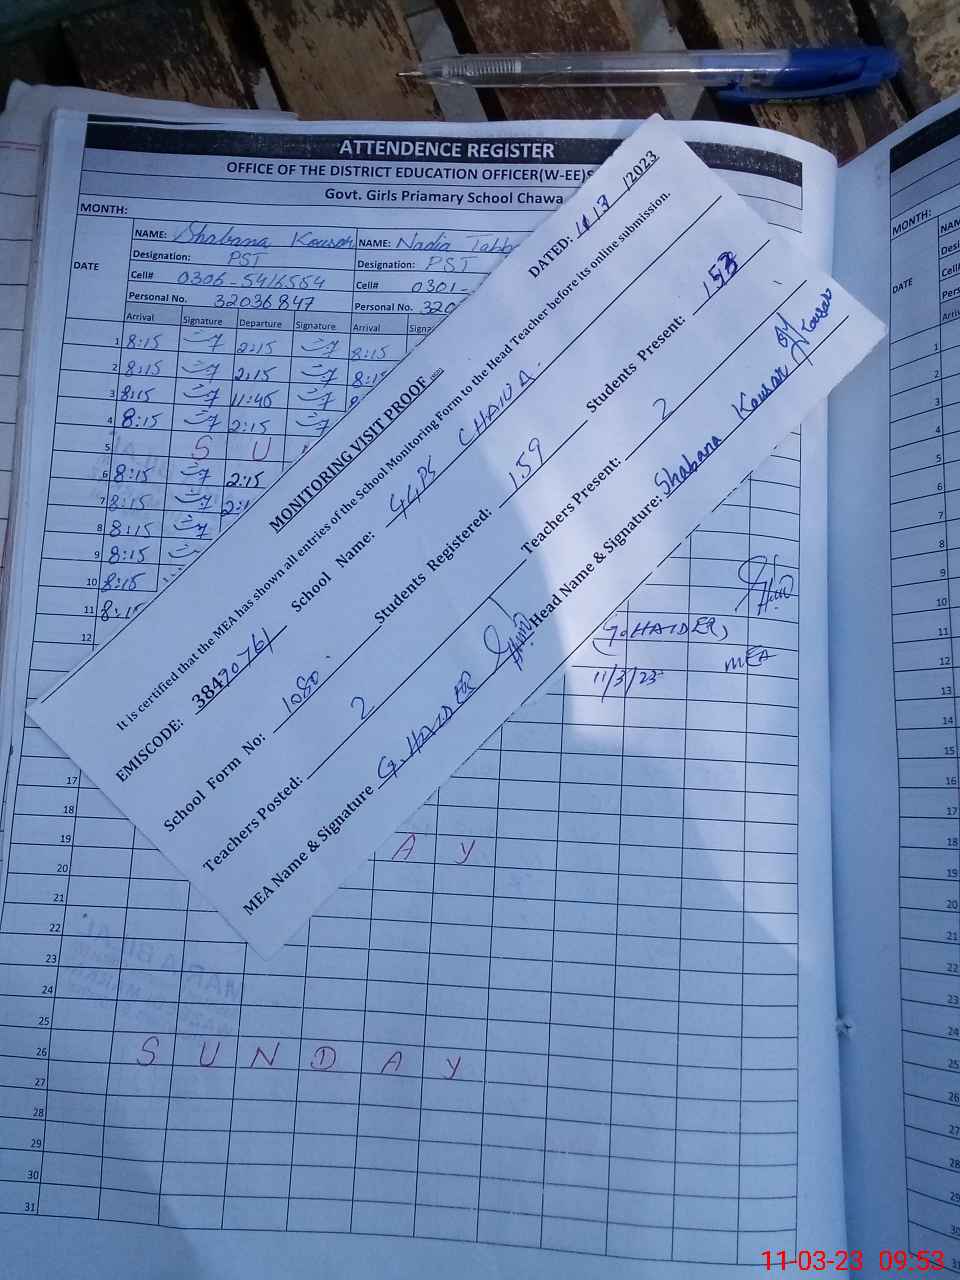 ATTENDENCE REGISTER
OFFICE OF THE DISTRICT EDUCATION OFFICER(W-EE)S
Govt. Girls Priamary School Chawa
MONTH:
DATE
NAME: Shabana Kousar NAME: Nadia
Designation: PST Designation: PST
Cell# 0306-5416554 Cell# 0301-
Personal No. 32036847 Personal No. 320
Arrival Signature Departure Signature Arrival
1 8:15 2:15 8:15
2 8:15 2:15 8:15
3 8:15 11:45
4 8:15 2:15
5 S U
6 8:15 2:15
7 8:15
8 8:15
9 8:15
10 8:15
11 8:15
12
17
18
19 A Y
20
21
22
23
24
25
26 S U N D A Y
27
28
29
30
31
MONITORING VISIT PROOF
DATED: 11/3/2023
It is certified that the MEA has shown all entries of the School Monitoring Form to the Head Teacher before its online submission.
EMISCODE: 38490761 School Name: GGPS CHAWA
School Form No: 1080 Students Registered: 159 Students Present: 153
Teachers Posted: 2 Teachers Present: 2
MEA Name & Signature G. HAIDER Head Name & Signature: Shabana Kousar
G. HAIDER,
MEA
11/3/23
MONTH:
DATE
1
2
3
4
5
6
7
8
9
10
11
12
13
14
15
16
17
18
19
20
21
22
23
24
25
26
27
28
29
30
11-03-23 09.53